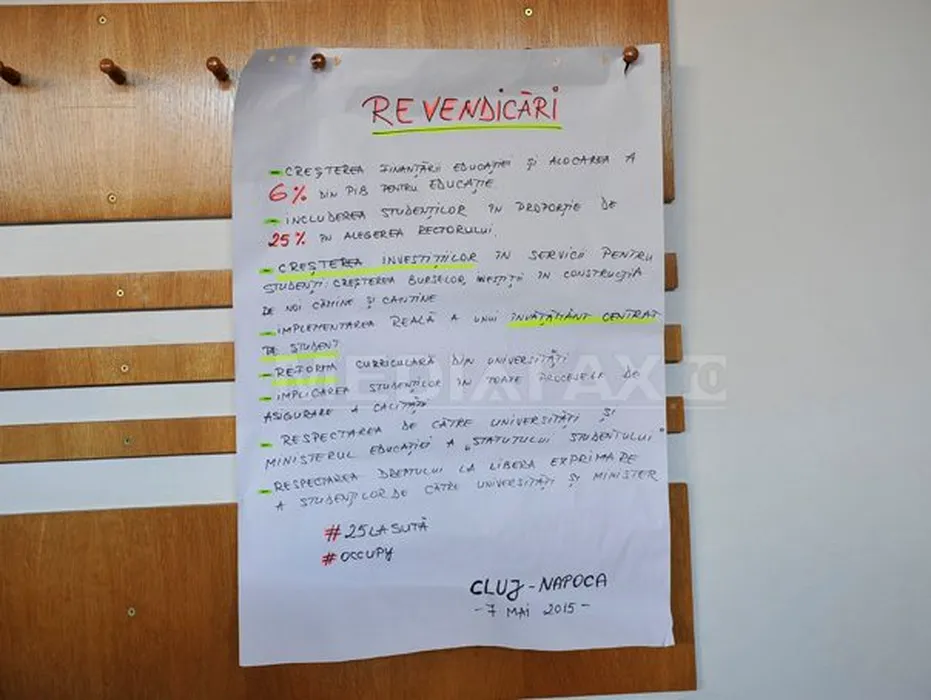 REVENDICĂRI
- CREȘTEREA FINANȚĂRII EDUCAȚIEI ȘI ALOCAREA A
6% DIN PIB PENTRU EDUCAȚIE.
- INCLUDEREA STUDENȚILOR ÎN PROPORȚIE DE
25% ÎN ALEGEREA RECTORULUI.
- CREȘTEREA INVESTIȚIILOR ÎN SERVICII PENTRU
STUDENȚI: CREȘTEREA BURSELOR, INVESTIȚII ÎN CONSTRUCȚIA
DE NOI CĂMINE ȘI CANTINE
- IMPLEMENTAREA REALĂ A UNUI ÎNVĂȚĂMÂNT CENTRAT
PE STUDENT
- REFORMA CURRICULARĂ DIN UNIVERSITĂȚI
- IMPLICAREA STUDENȚILOR ÎN TOATE PROCESELE DE
ASIGURARE A CALITĂȚII
- RESPECTAREA DE CĂTRE UNIVERSITĂȚI ȘI
MINISTERUL EDUCAȚIEI A „STATUTULUI STUDENTULUI"
- RESPECTAREA DREPTULUI LA LIBERA EXPRIMARE
A STUDENȚILOR DE CĂTRE UNIVERSITĂȚI ȘI MINISTER
# 25LASUTĂ
# OCCUPY
CLUJ-NAPOCA
- 7 MAI 2015 -
MEDIAFAX.RO